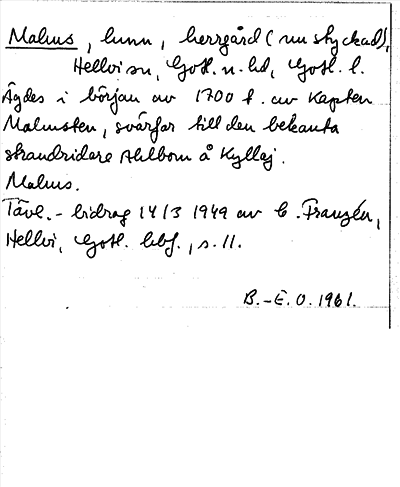 Malms, hmn, herrgård (nu styckad),
Hellvi sn, Gotl. n. hd, Gotl. l.
Ägdes i början av 1700 t. av Kapten
Malmsten, svärfar till den bekanta
strandridare Ahlbom å Kyllej.
Malms.
Tävl.-bidrag 14/3 1949 av C. Franzén,
Hellvi, Gotl. hbf., s. 11.
B.-E. O. 1961.